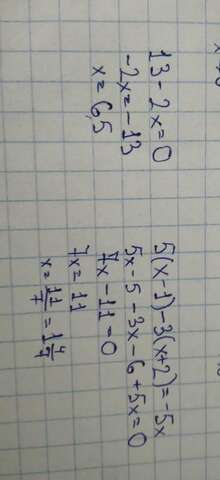 13 - 2x = 0
-2x = -13
x = 6,5
5(x-1)-3(x+2) = -5x
5x - 5 - 3x - 6 + 5x = 0
7x - 11 = 0
7x = 11
x = 11/7 = 1 4/7